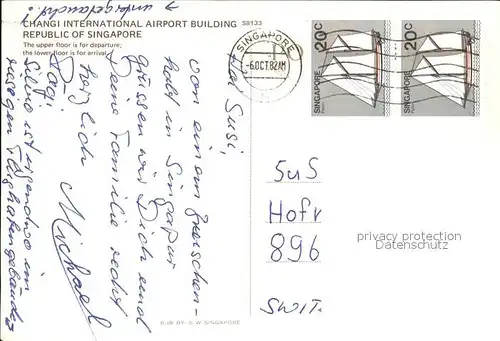 → untergetaucht!?
CHANGI INTERNATIONAL AIRPORT BUILDING S9133
REPUBLIC OF SINGAPORE
The upper floor is for departure;
the lower floor is for arrival.
SINGAPORE
-6.OCT.82AM
20c
SINGAPORE
20c
SINGAPORE
Hoi Susi,
von einem Zwischen-
halt in Singapur
grüssen wir Dich und
Deine Familie recht
herzlich
Michael
Silvio ist irgendwo im
riesigen Flughafengebäude
SuS
Hofr
896
SWIT.
privacy protection
Datenschutz
BY S.W. SINGAPORE